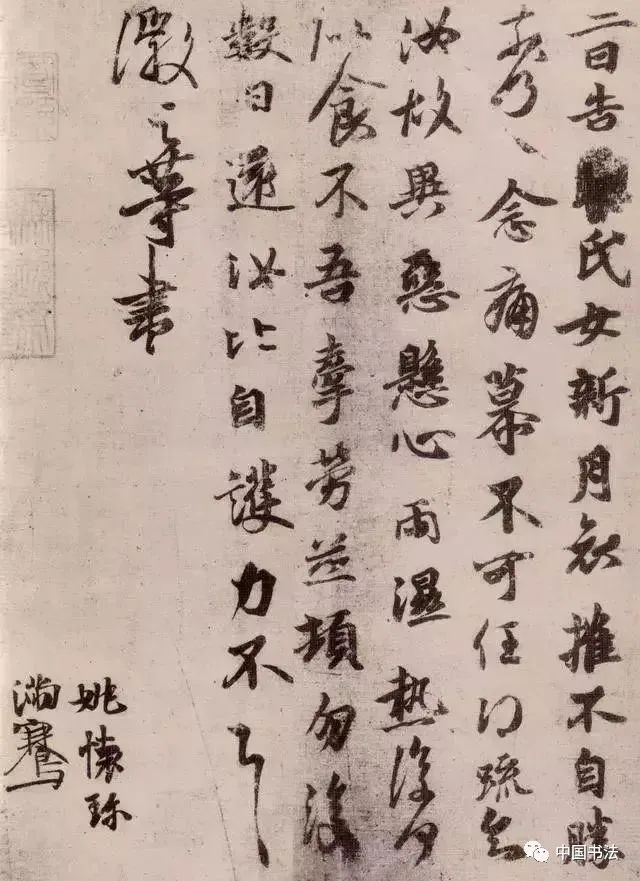 二日告氏女新月哀摧不自勝
奈何奈何念痛慕不可任得疏知
汝故異惡懸心雨濕熱復何
似食不吾牽勞並頓勿復
數日還汝比自護力不
徽之等書
姚懷珍
滿騫
中国书法